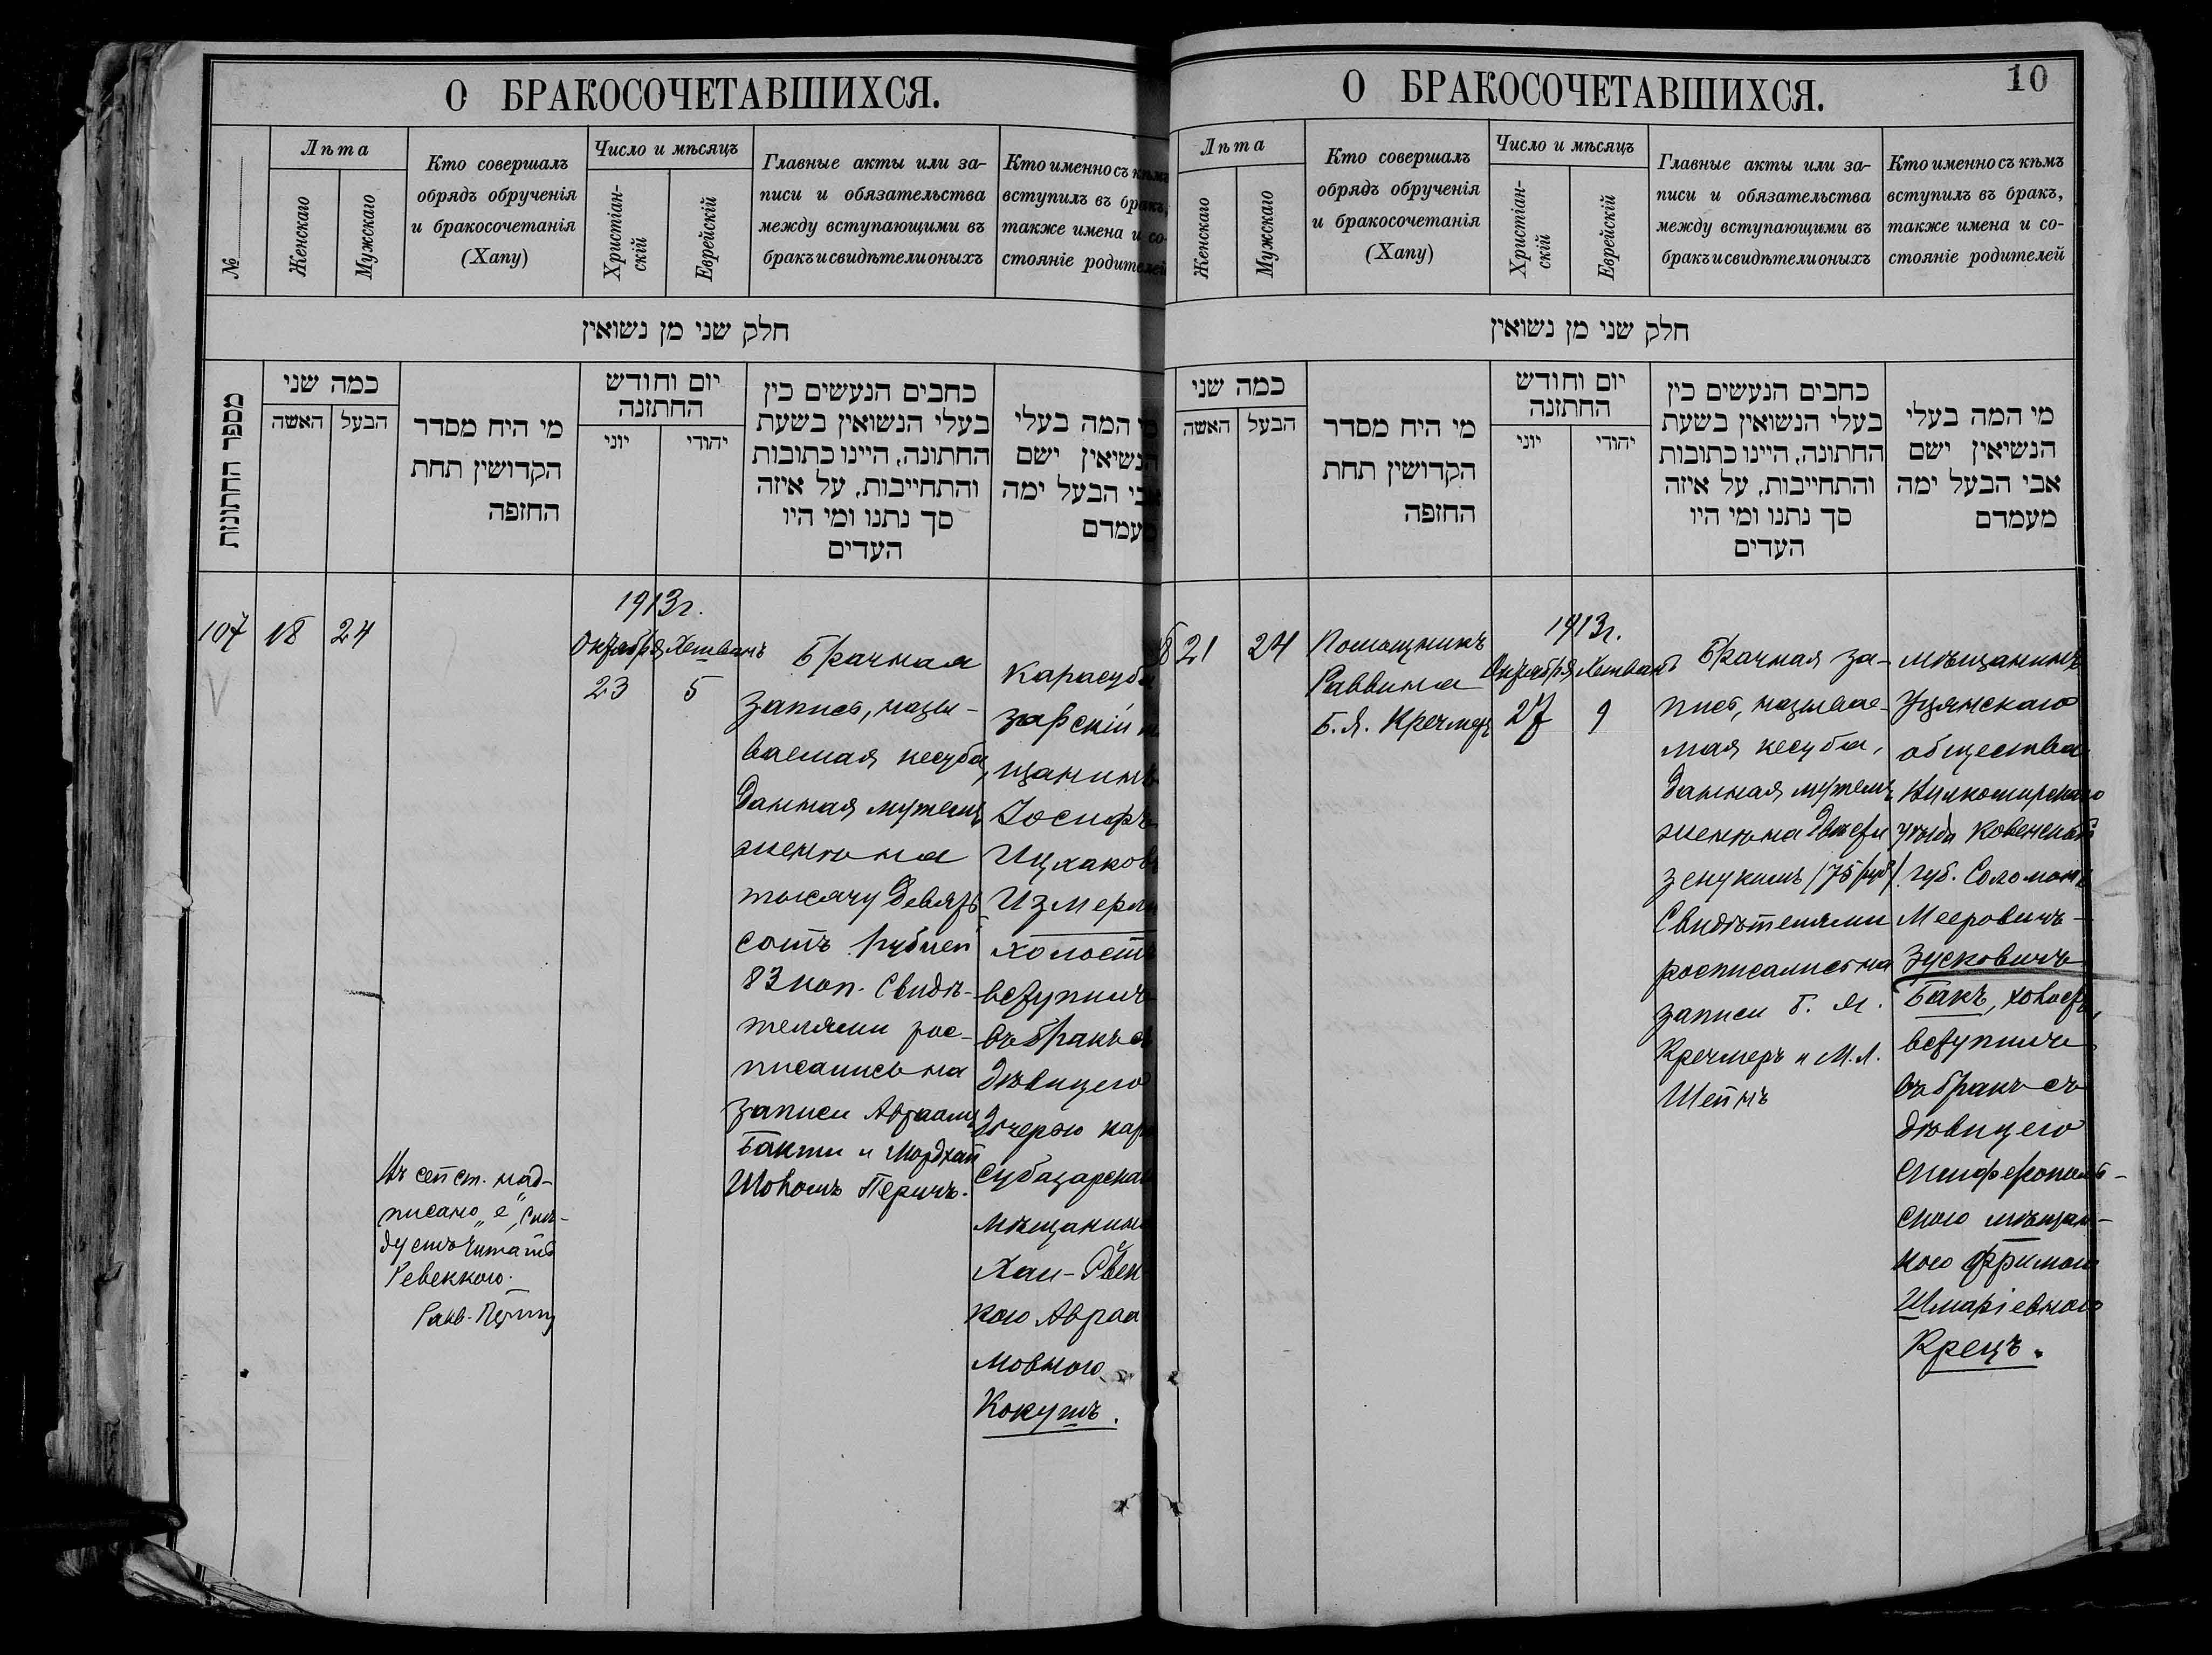 О БРАКОСОЧЕТАВШИХСЯ.
№
Лѣта
Женскаго
Мужскаго
Кто совершалъ
обрядъ обрученія
и бракосочетанія
(Хапу)
Число и мѣсяцъ
Христіан-
скій
Еврейскій
Главные акты или за-
писи и обязательства
между вступающими въ
бракъ и свидѣтели оныхъ
Кто именно съ кѣмъ
вступилъ въ бракъ,
также имена и со-
стояніе родителей
חלק שני מן נשואין
מספר החתונות
כמה שני
האשה
הבעל
מי היח מסדר
הקדושין תחת
החזפה
יום וחודש
החתזנה
יוני
יהודי
כחבים הנעשים כין
בעלי הנשואין בשעת
החתונה, היינו כתובות
והתחייבות, על איזה
סך נתנו ומי היו
העדים
מי המה בעלי
הנשיאין ישם
אבי הבעל ימה
מעמדם
107
18
24
Въ сей ст. над-
писано „е“, слѣ-
дуетъ читать
Ревеккою.
Равв.
1913 г.
Октября
23
Хешванъ
5
Брачная
запись, назы-
ваемая кесуба,
данная мужемъ
женѣ на
тысячу девять
сотъ рублей
83 коп. Свидѣ-
телями рос-
писались на
записи Авраамъ
Бакши и Мордхай
Шоломъ Перичъ.
Карасуба
зарскій м
щанинъ
Іосифъ
Ицхаков
Измерли
холостъ
вступилъ
въ бракъ съ
дѣвицею
дчерью кара
субазарска
мѣщанин
Хан-Рвек
кою Авраа
мовною
Кокушъ.
О БРАКОСОЧЕТАВШИХСЯ.
10
Лѣта
Женскаго
Мужскаго
Кто совершалъ
обрядъ обрученія
и бракосочетанія
(Хапу)
Число и мѣсяцъ
Христіан-
скій
Еврейскій
Главные акты или за-
писи и обязательства
между вступающими въ
бракъ и свидѣтели оныхъ
Кто именно съ кѣмъ
вступилъ въ бракъ,
также имена и со-
стояніе родителей
חלק שני מן נשואין
כמה שני
האשה
הבעל
מי היח מסדר
הקדושין תחת
החזפה
יום וחודש
החתזנה
יוני
יהודי
כחבים הנעשים כין
בעלי הנשואין בשעת
החתונה, היינו כתובות
והתחייבות, על איזה
סך נתנו ומי היו
העדים
מי המה בעלי
הנשיאין ישם
אבי הבעל ימה
מעמדם
8
21
24
Помощникъ
Раввина
Б. Я. Кречмеръ
1913 г.
Октября
27
Хешванъ
9
Брачная за-
пись, называе-
мая кесуба,
данная мужемъ
женѣ на двѣсти
зекукимъ (75 руб)
Свидѣтелями
росписались на
записи Б. Я.
Кречмеръ и М. Л.
Шейнъ
мѣщанинъ
Уцянскаго
общества
Вилкомирскаго
уѣзда Ковенской
губ. Соломонъ
Мееровичъ-
Зусковичъ
Бакъ, холостъ,
вступилъ
въ бракъ съ
дѣвицею
симферополь-
скою мѣщан-
кою Фримою
Шмаріевною
Крецъ.